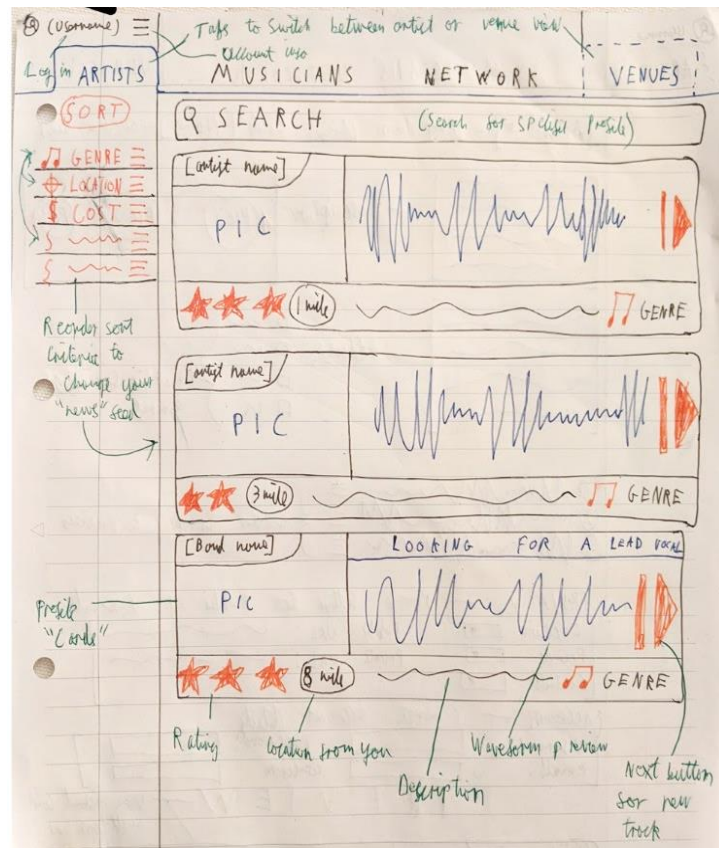 (Username)
Tabs to switch between artist or venue view
account info
Log in
ARTISTS
MUSICIANS NETWORK
VENUES
SORT
SEARCH
(Search for specific profile)
GENRE
LOCATION
$ COST
Reorder sort
criteria to
change your
"news" feed
[artist name]
PIC
1 mile
GENRE
[artist name]
PIC
3 mile
GENRE
[Band name]
LOOKING FOR A LEAD VOCAL
PIC
8 mile
GENRE
Profile
"Cards"
Rating
location from you
Description
Waveform preview
Next button
for new
track